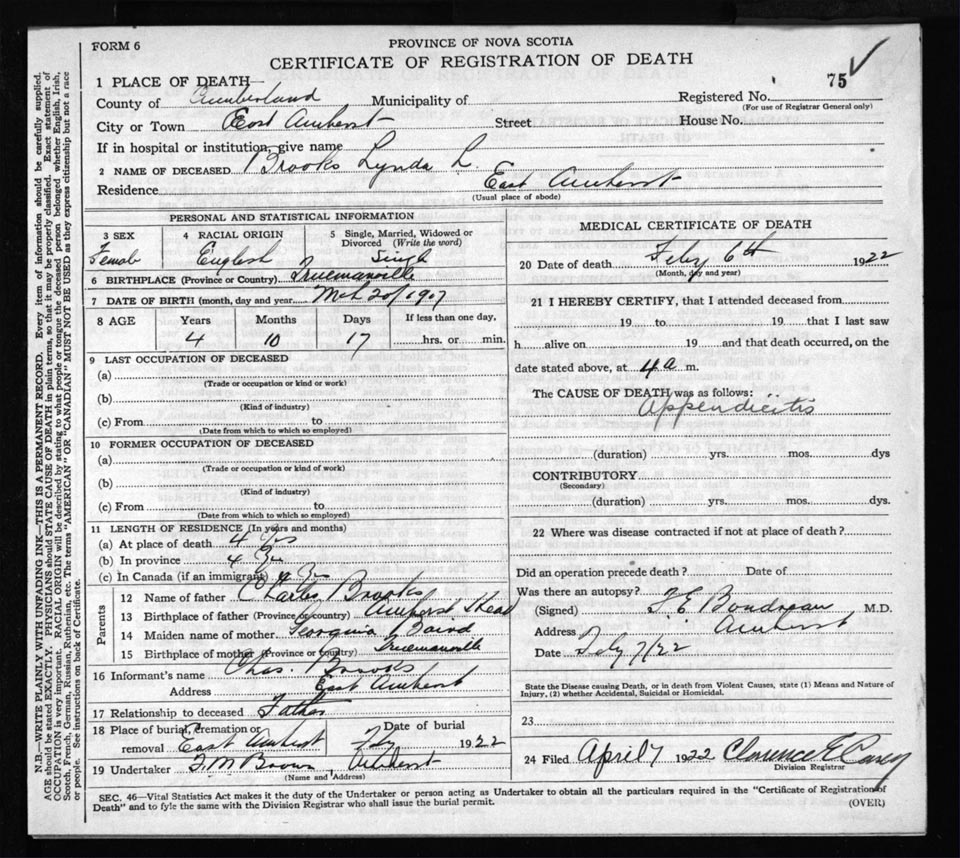 FORM 6
PROVINCE OF NOVA SCOTIA
CERTIFICATE OF REGISTRATION OF DEATH
75 ✓
1 PLACE OF DEATH
County of Cumberland Municipality of Registered No.
(For use of Registrar General only)
City or Town East Amherst Street House No.
If in hospital or institution, give name
2 NAME OF DECEASED Brooks Lynda L.
Residence East Amherst
(Usual place of abode)
PERSONAL AND STATISTICAL INFORMATION
3 SEX Female
4 RACIAL ORIGIN English
5 Single, Married, Widowed or Divorced (Write the word) Single
6 BIRTHPLACE (Province or Country) Truemanville
7 DATE OF BIRTH (month, day and year) Mch 20/1917
8 AGE Years Months Days If less than one day,
4 10 17 hrs. or min.
9 LAST OCCUPATION OF DECEASED
(a)
(Trade or occupation or kind or work)
(b)
(Kind of industry)
(c) From to
(Date from which to which so employed)
10 FORMER OCCUPATION OF DECEASED
(a)
(Trade or occupation or kind of work)
(b)
(Kind of industry)
(c) From to
(Date from which to which so employed)
11 LENGTH OF RESIDENCE (In years and months)
(a) At place of death 4 yrs
(b) In province 4
(c) In Canada (if an immigrant) 4
Parents
12 Name of father Charles Brooks
13 Birthplace of father (Province or country) Amherst Head
14 Maiden name of mother Georguina Baird
15 Birthplace of mother (Province or country) Truemanville
16 Informant's name Chas. Brooks
Address East Amherst
17 Relationship to deceased Father
18 Place of burial, cremation or removal East Amherst
Date of burial 1922
19 Undertaker Brown Amherst
(Name and Address)
MEDICAL CERTIFICATE OF DEATH
20 Date of death Feby 6th 1922
(Month, day and year)
21 I HEREBY CERTIFY, that I attended deceased from
19 to 19 that I last saw
h alive on 19 and that death occurred, on the
date stated above, at 4 a m.
The CAUSE OF DEATH was as follows:
Appendicitis
(duration) yrs. mos. dys
CONTRIBUTORY
(Secondary)
(duration) yrs. mos. dys.
22 Where was disease contracted if not at place of death?
Did an operation precede death? Date of
Was there an autopsy?
(Signed) F. E. Boudreau M.D.
Address Amherst
Date Feby 7/22
State the Disease causing Death, or in death from Violent Causes, state (1) Means and Nature of
Injury, (2) whether Accidental, Suicidal or Homicidal.
23
24 Filed April 7 1922 Clarence E Casey
Division Registrar
SEC. 46—Vital Statistics Act makes it the duty of the Undertaker or person acting as Undertaker to obtain all the particulars required in the "Certificate of Registration of
Death" and to fyle the same with the Division Registrar who shall issue the burial permit.
(OVER)
N.B.—WRITE PLAINLY WITH UNFADING INK—THIS IS A PERMANENT RECORD. Every item of information should be carefully supplied.
AGE should be stated EXACTLY. PHYSICIANS should STATE CAUSE OF DEATH in plain terms, so that it may be properly classified. Exact statement of
OCCUPATION is very important. RACIAL ORIGIN will be described by stating to what people or tongue the deceased person belonged whether English, Irish,
Scotch, French, German, Russian, Ruthenian, etc. The terms "AMERICAN" OR "CANADIAN" MUST NOT BE USED as they express citizenship but not a race
or people. See instructions on back of Certificate.